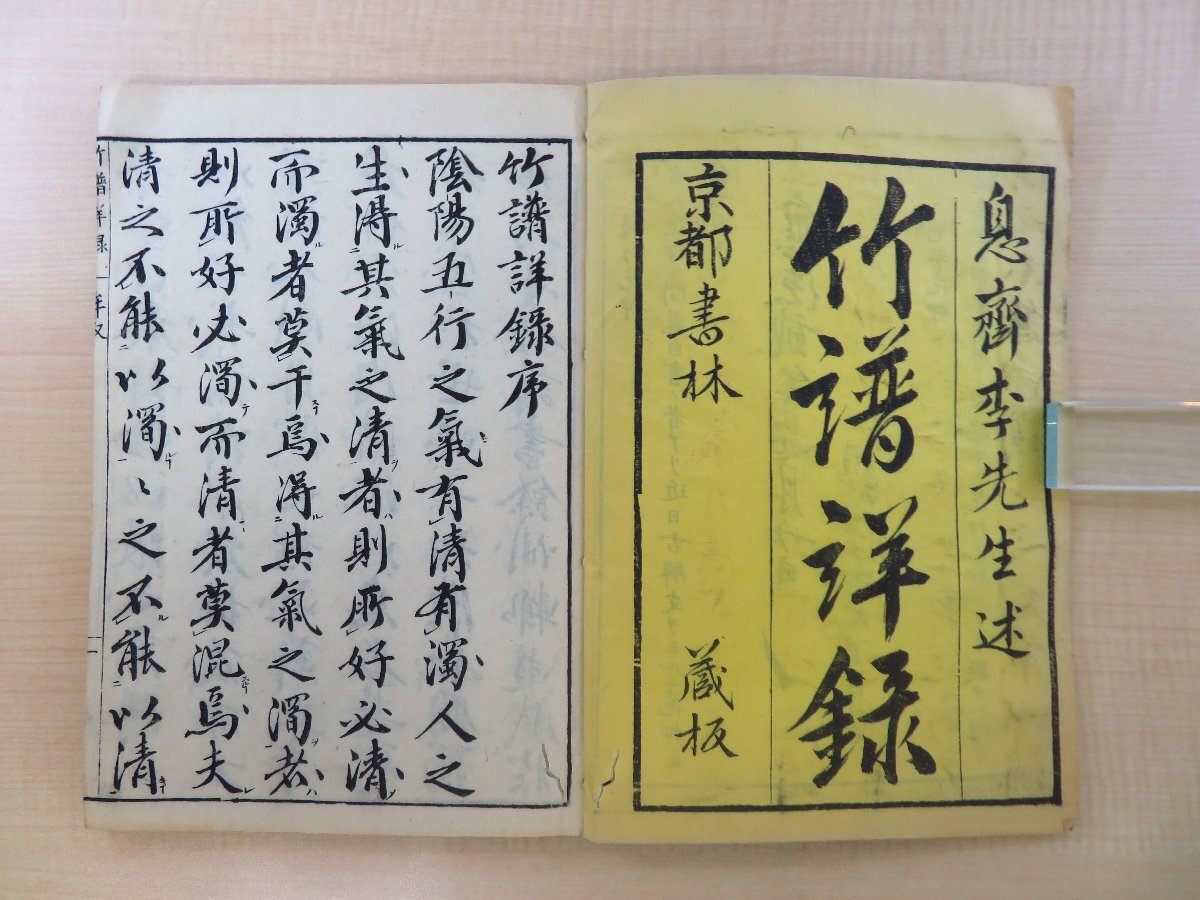 息齋李先生述
竹譜詳錄
京都書林 藏板
竹譜詳錄序
陰陽五行之氣有清有濁人之
生得其氣之清者則所好必清
而濁者莫干焉得其氣之濁者
則所好必濁而清者莫混焉夫
清之不能以濁〻之不能以清
竹譜詳錄